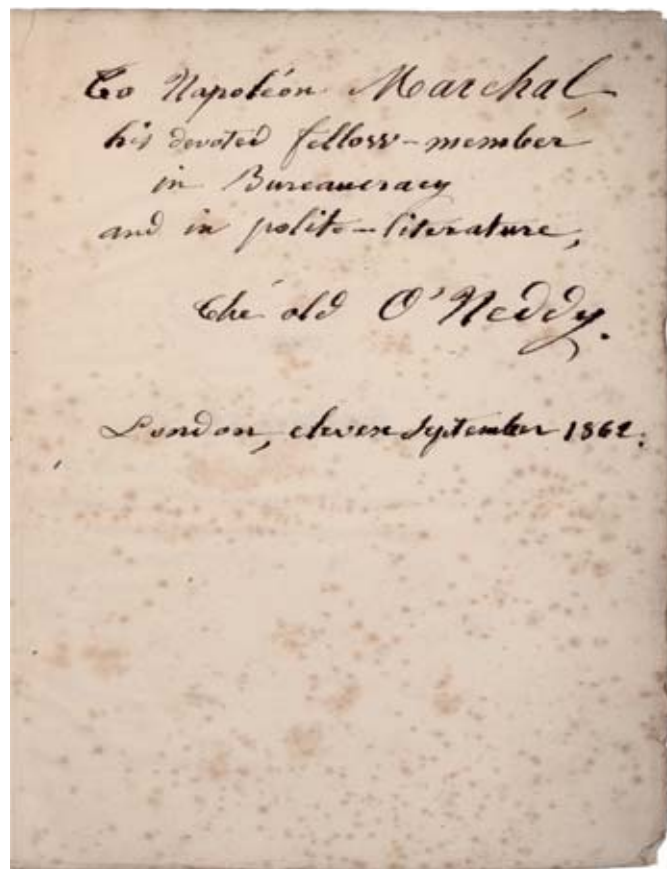 To Napoléon Marchal,
his devoted fellow-member
in Bureaucracy
and in polite-literature,
The old O'Neddy.
London, eleven September 1862.